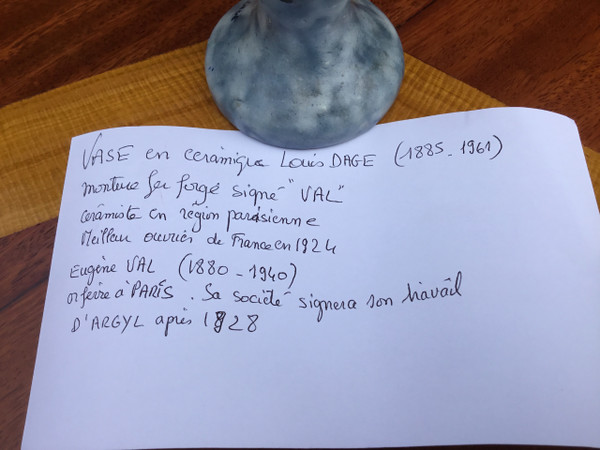 VASE en ceramique Louis DAGE (1885-1961)
monture fer forgé signé "VAL"
céramiste en région parisienne
Meilleur ouvrier de France en 1924
Eugène VAL (1880-1940)
orfèvre à PARIS. Sa société signera son travail
D'ARGYL après 1928